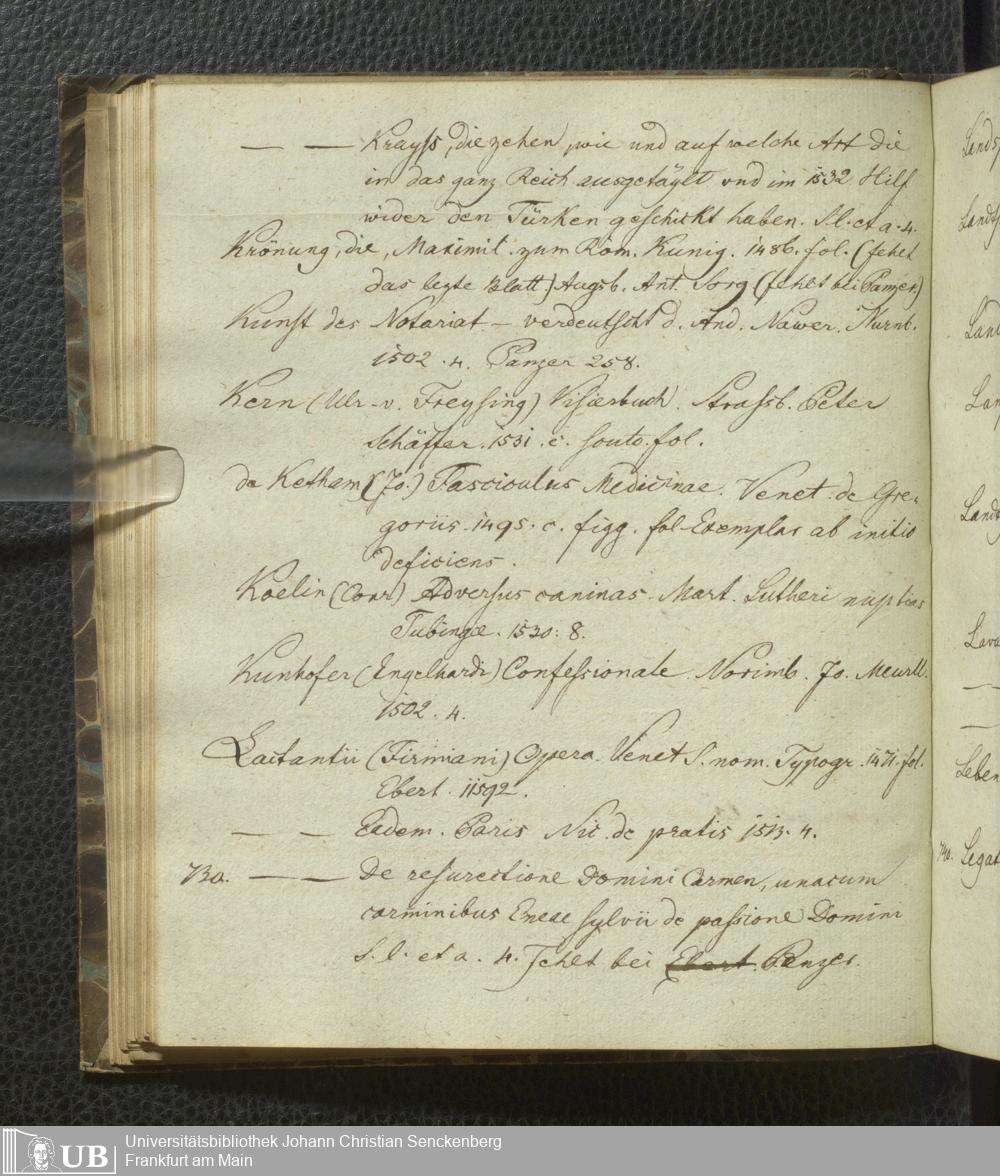 — — Krayß, die zehen, wie und auf welche Art die
in das ganz Reich ausgetaylt vnd im 1532 Hilf
wider den Türken geschickt haben. S. l. et a. 4.
Krönung, die, Maximil. zum Röm. Kunig. 1486. fol. (fehlt
das lezte Blatt) Augsb. Ant. Sorg (fehlt bei Panzer)
Kunst des Notariat – verdeutscht d. And. Nawer. Nurnb.
1502. 4. Panzer 258.
Kern (Ulr. v. Freysing) Visierbuch. Strassb. Peter
Schäffer. 1531. c. fol.
de Ketham (Jo.) Fasciculus Medicinae. Venet. de Gre-
goriis. 1495. c. figg. fol. Exemplar ab initio
deficiens.
Koelin (Conr) Adversus caninas Mart. Lutheri nuptias
Tubingæ. 1530. 8.
Kunhofer (Engelhardi) Confessionale. Norimb. Jo. Meurll.
1502. 4.
Lactantii (Firmiani) Opera. Venet S. nom. Typogr. 1471. fol.
Ebert. 11592.
— — Eadem. Paris Nic. de pratis 1513. 4.
730. — — De resurectione Domini Carmen, unacum
carminibus Eneae Sylvii de passione Domini
S. l. et a. 4. Fehlt bei Ebert. Panzer.
Lava
Leben
740. Legat
UB
Universitätsbibliothek Johann Christian Senckenberg
Frankfurt am Main